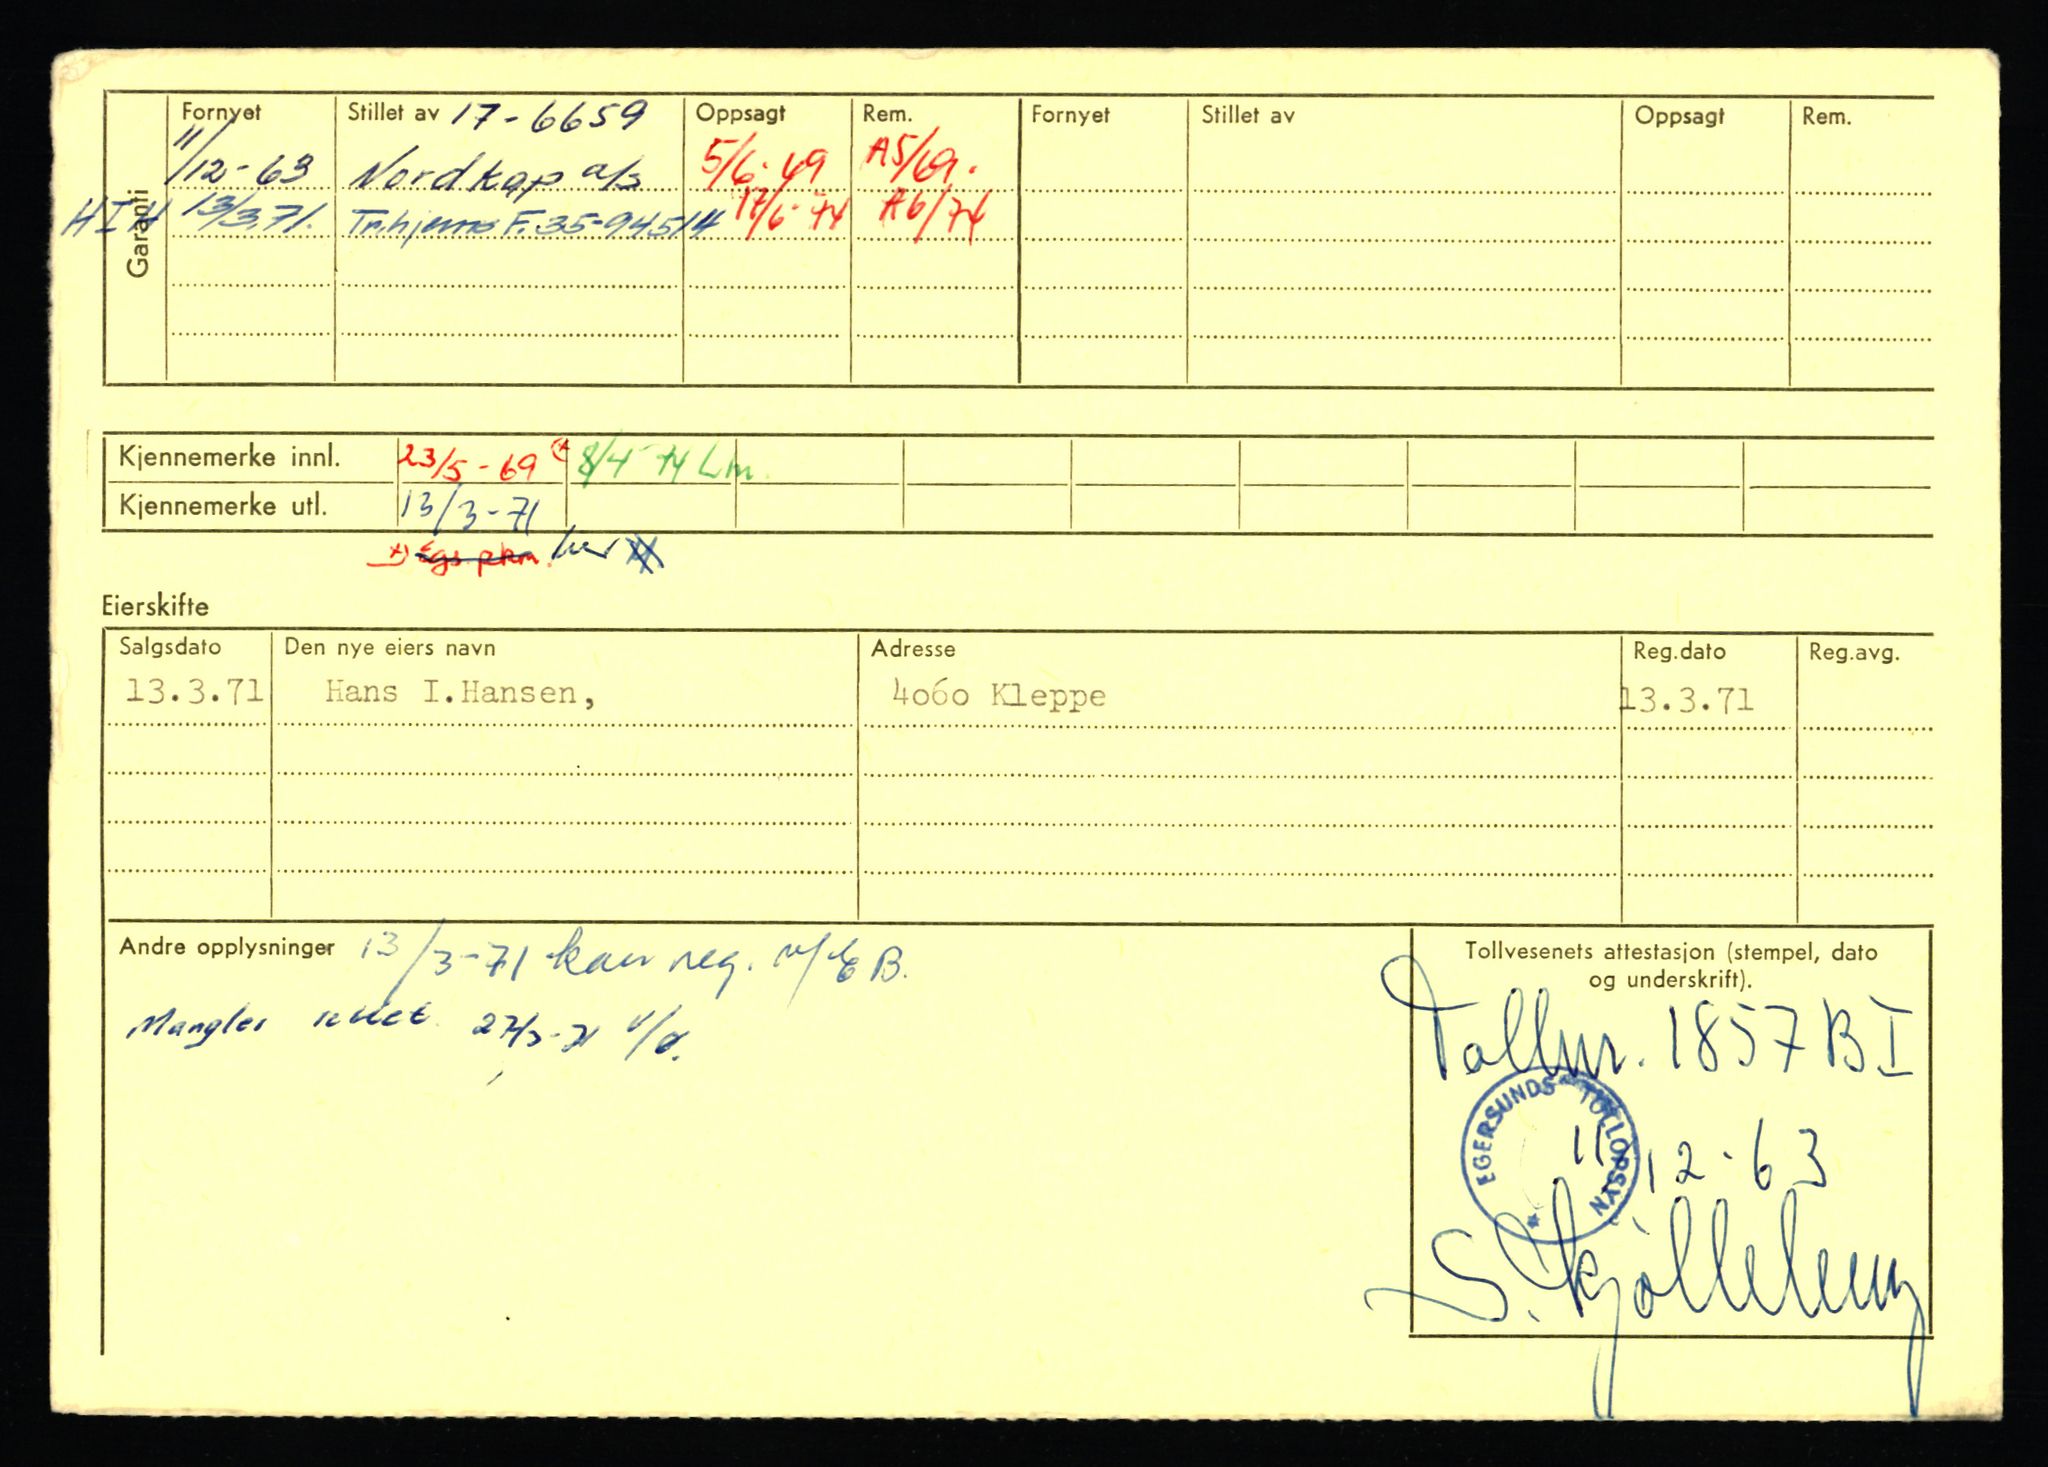 Garanti
Fornyet Stillet av 17-6659 Oppsagt Rem. Fornyet Stillet av Oppsagt Rem.
11/12-63 Nordkap a/s 5/6-69 A5/69.
HIH 13/3.71. Tr.hjems F.35-94514 17/6-74 A6/74
Kjennemerke innl. 23/5-69 x) 8/4-74 Lm.
Kjennemerke utl. 13/3-71
x) Egs. pkm. her
Eierskifte
Salgsdato Den nye eiers navn Adresse Reg.dato Reg.avg.
13.3.71 Hans I.Hansen, 4060 Kleppe 13.3.71
Andre opplysninger 13/3-71 kan reg.
Mangler rettet 27/3-71
Tollvesenets attestasjon (stempel, dato
og underskrift).
Tollnr. 1857 B I
EGERSUNDS TOLLOPPSYN
11.12.63